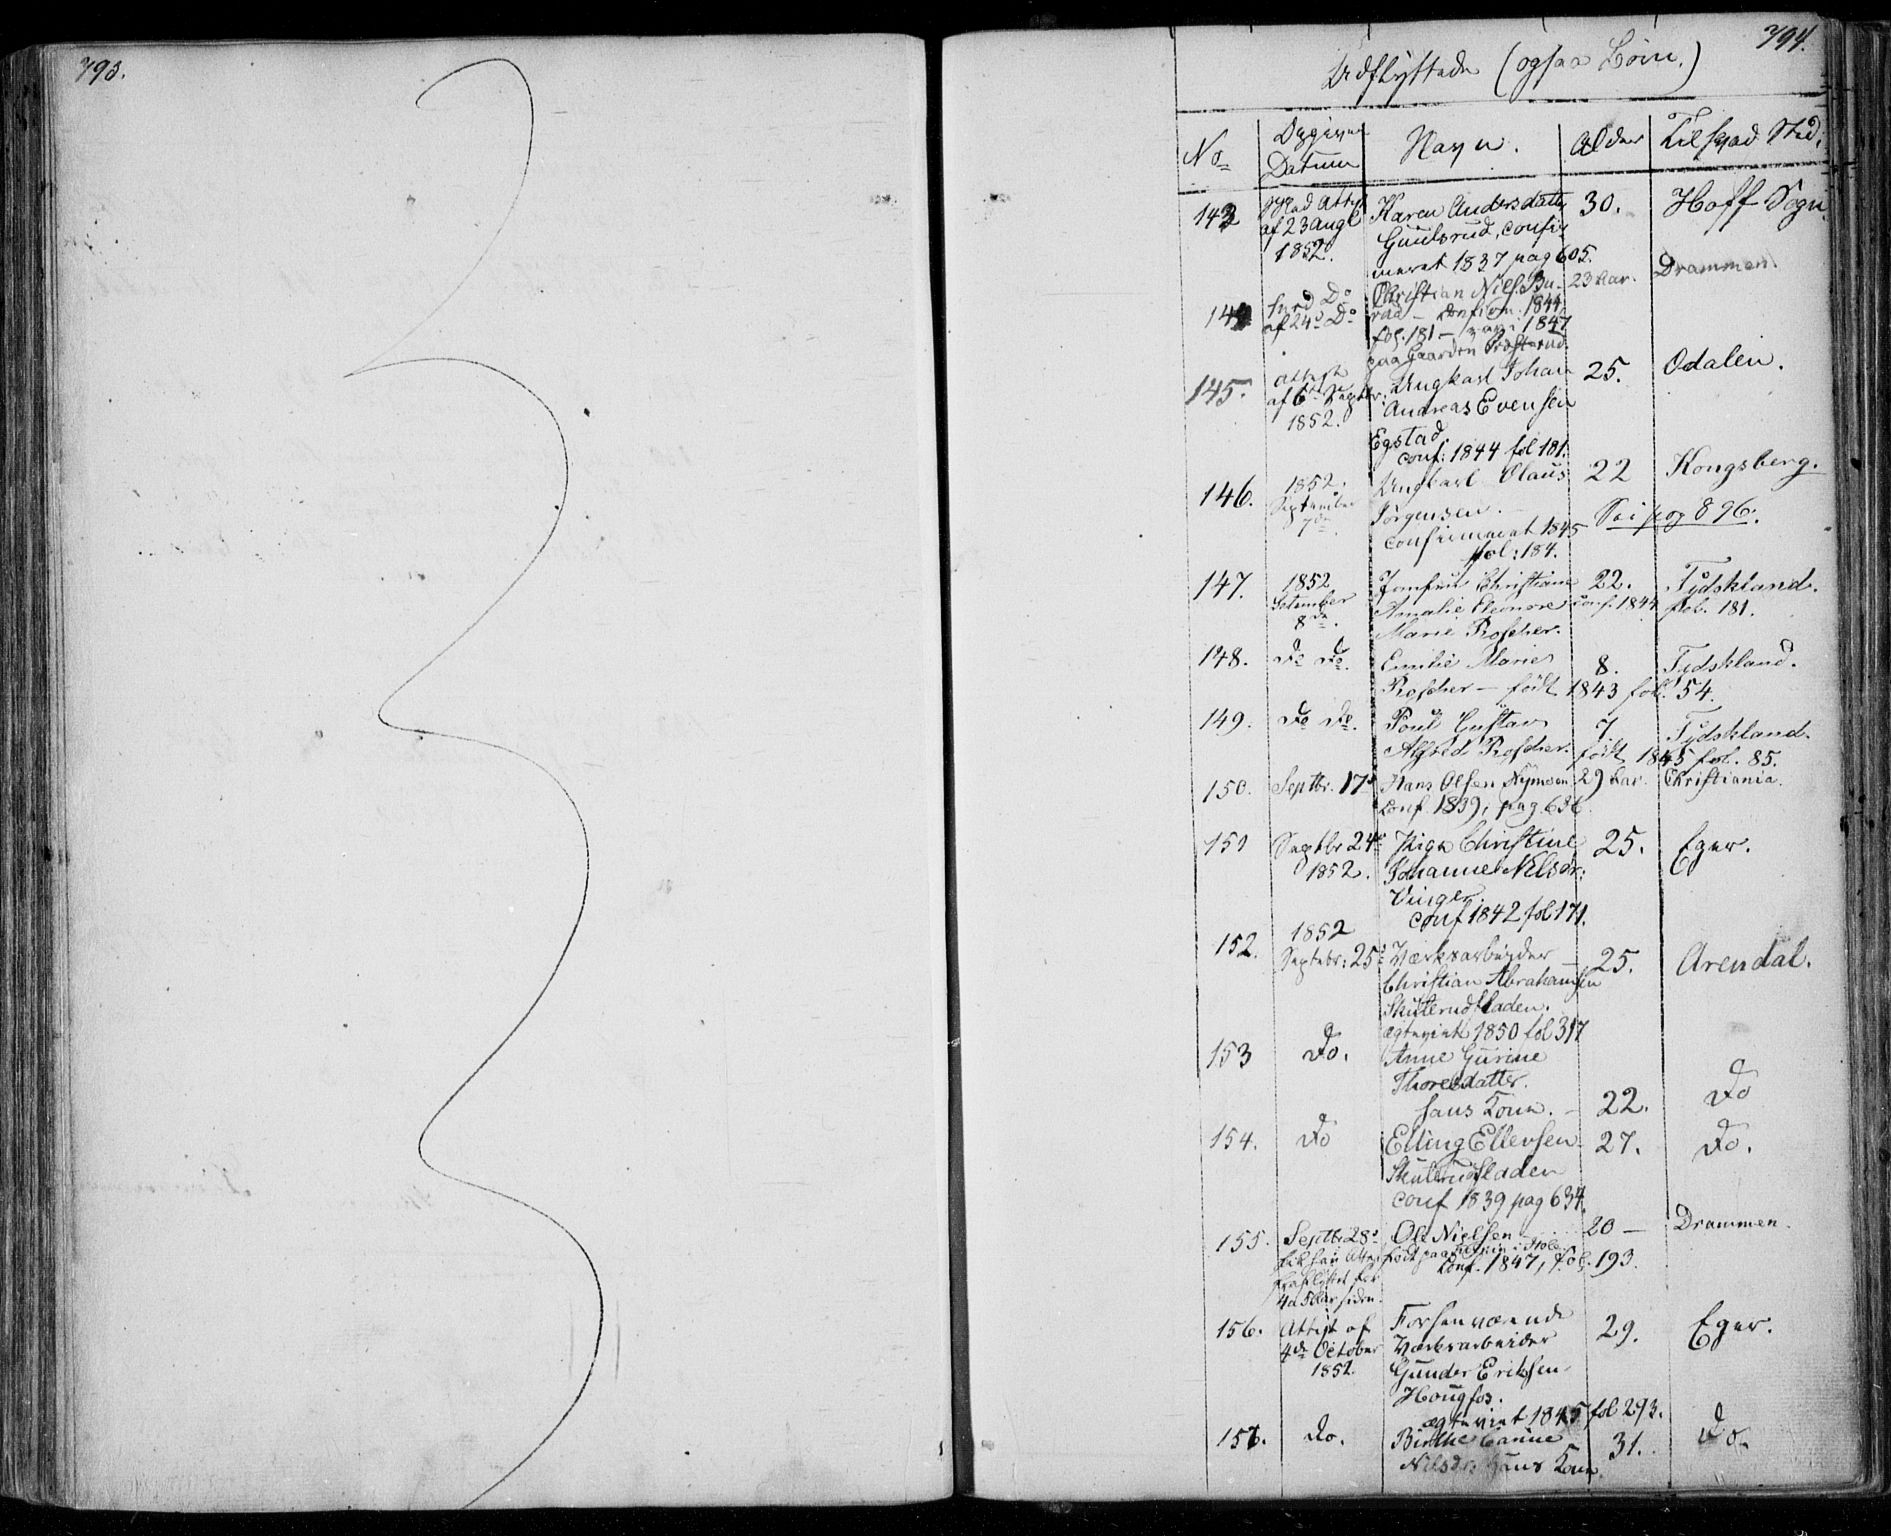 793.
794.
Udflyttede (ogsaa Qvin.)
No Opgivne Datum Navn. Alder Tilhvad Sted.
143 Attest af 23 Augl 1852. Karen Andersdatter 30. Hoff Sogn.
Guulsrud, confir-
meret 1837 pag 605.
144 Do af 24de Do Christian Niels. Bu- 23 Aar. Drammen.
rud — Confirm: 1844
fol. 181 — 1847
paa Gaarden
145. Attest af 6te Septbr: 1852. Ungkarl Johan 25. Odalen.
Andreas Evensen
Egstad
conf: 1844 fol 181.
146. 1852. September 7de. Ungkarl Olaus 22 Kongsberg.
Jörgensen. — See pag 896.
confirmeret 1845
fol: 184.
147. 1852 Setember 8de. Jomfrue Christiane 22. Tydskland.
Amalie Eleonore conf. 1844 fol. 181.
Marie Roscher.
148. Do Do. Emilie Marie 8. Tydskland.
Roscher — födt 1843 fol. 54.
149. Do Do. Poul Gustav 7 Tydskland.
Alfred Roscher. födt 1845 fol. 85.
150. Septbr. 17de Hans Olsen Nymoen 29 Aar. Christiania.
Conf. 1839, pag 636
151 Septbr 24de 1852. Pige Christine 25. Eger.
Johanne Nilsdr:
Vinger.
conf 1842 fol 171.
152. 1852 Septebr: 25de Værksarbeider — 25. Arendal.
Christian Abrahamsen
Skuterudfladen.
ægteviet 1850 fol 317
153 Do. Anne Gurine
Thoresdatter.
hans Kone. — 22. Do
154. Do Elling Ellevsen 27. Do.
Skuterudfladen
conf 1839 pag 634.
155. Septbr 28de Ole Nielsen 20 — Drammen.
fik han Attest födt paa
Conf. 1847, Fol. 193.
4 a 5 Aar siden.
156. Attest af 4de October 1852. Forhenværende 29. Eger.
Værksarbeider
Gunder Eriksen
Hougfos.
ægteviet 1845 fol 293.
157. Do. Birthe Carine 31. Do.
Nilsdr: hans Kone.